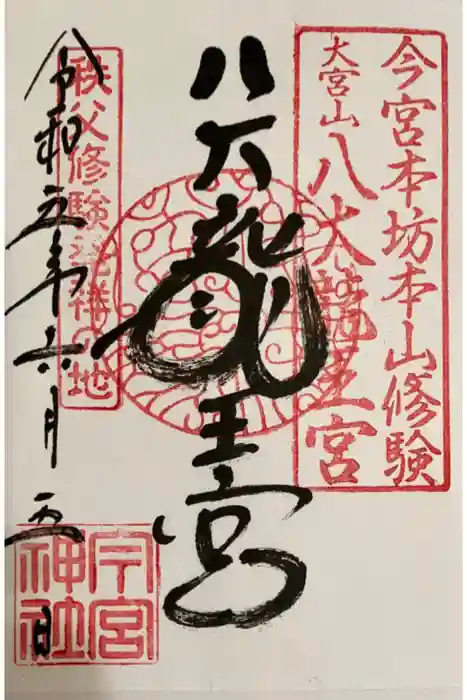 今宮本坊本山修験
大宮山八大龍王宮
八大龍王宮
秩父修験発祥の地
令和元年六月五日
今宮神社